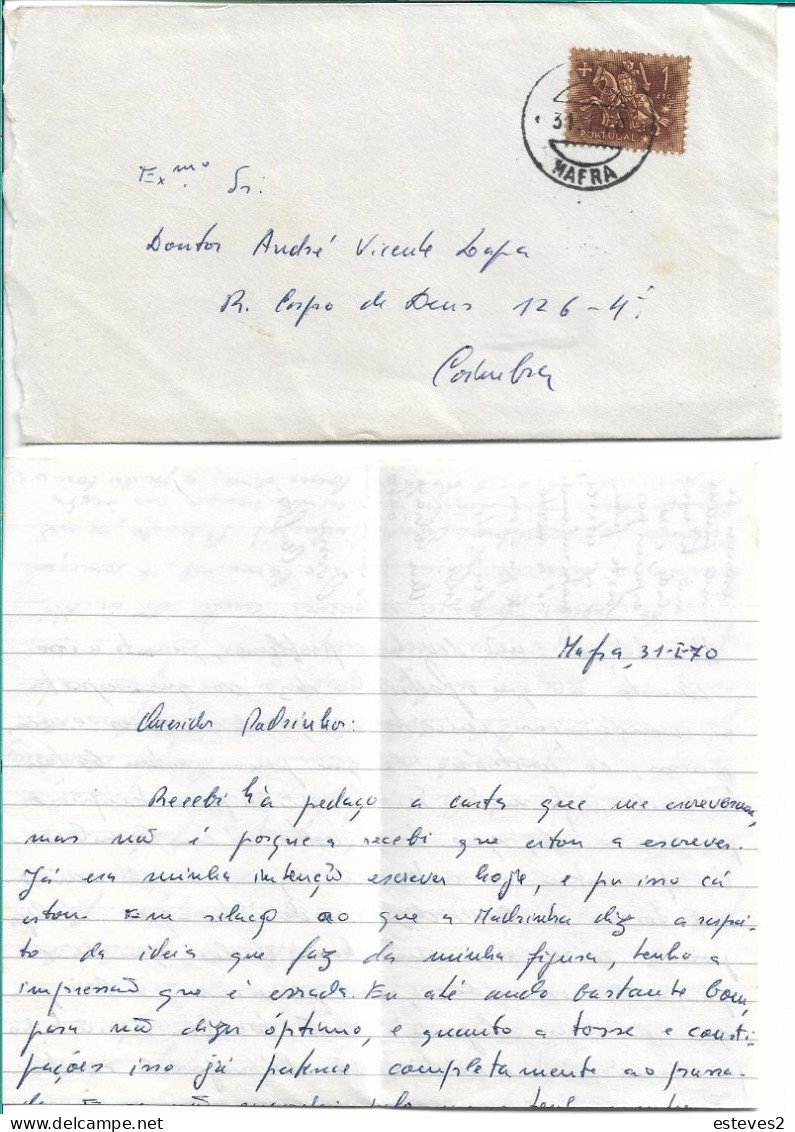 1
ESC.
PORTUGAL
31
MAFRA
Exmo. Sr.
Doutor André Vicente Lapa
R. Corpo de Deus 126-4º
Coimbra
Mafra, 31-I-70
Queridos Padrinhos:
Recebi há pedaço a carta que me escreveram,
mas não é porque a recebi que estou a escrever.
Já era minha intenção escrever hoje, e por isso cá
estou. Em relação ao que a Madrinha diz a respei-
to da ideia que faz da minha figura, tenho a
impressão que é errada. Eu até ando bastante bom,
para não dizer óptimo, e quanto a tosse e consti-
pações isso já pertence completamente ao passa-
esteves2